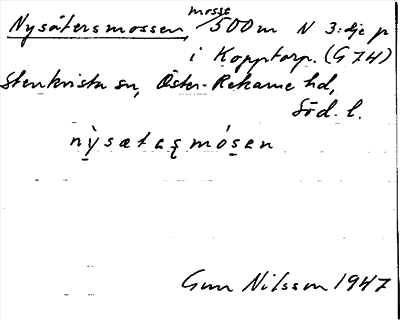 Nysätersmossen, mosse 500 m N 3:dje p
i Kopptorp. (G 74)
Stenkvista sn, Öster-Rekarne hd,
Söd. l.
nỳsætεʂmósen
Gun Nilsson 1947